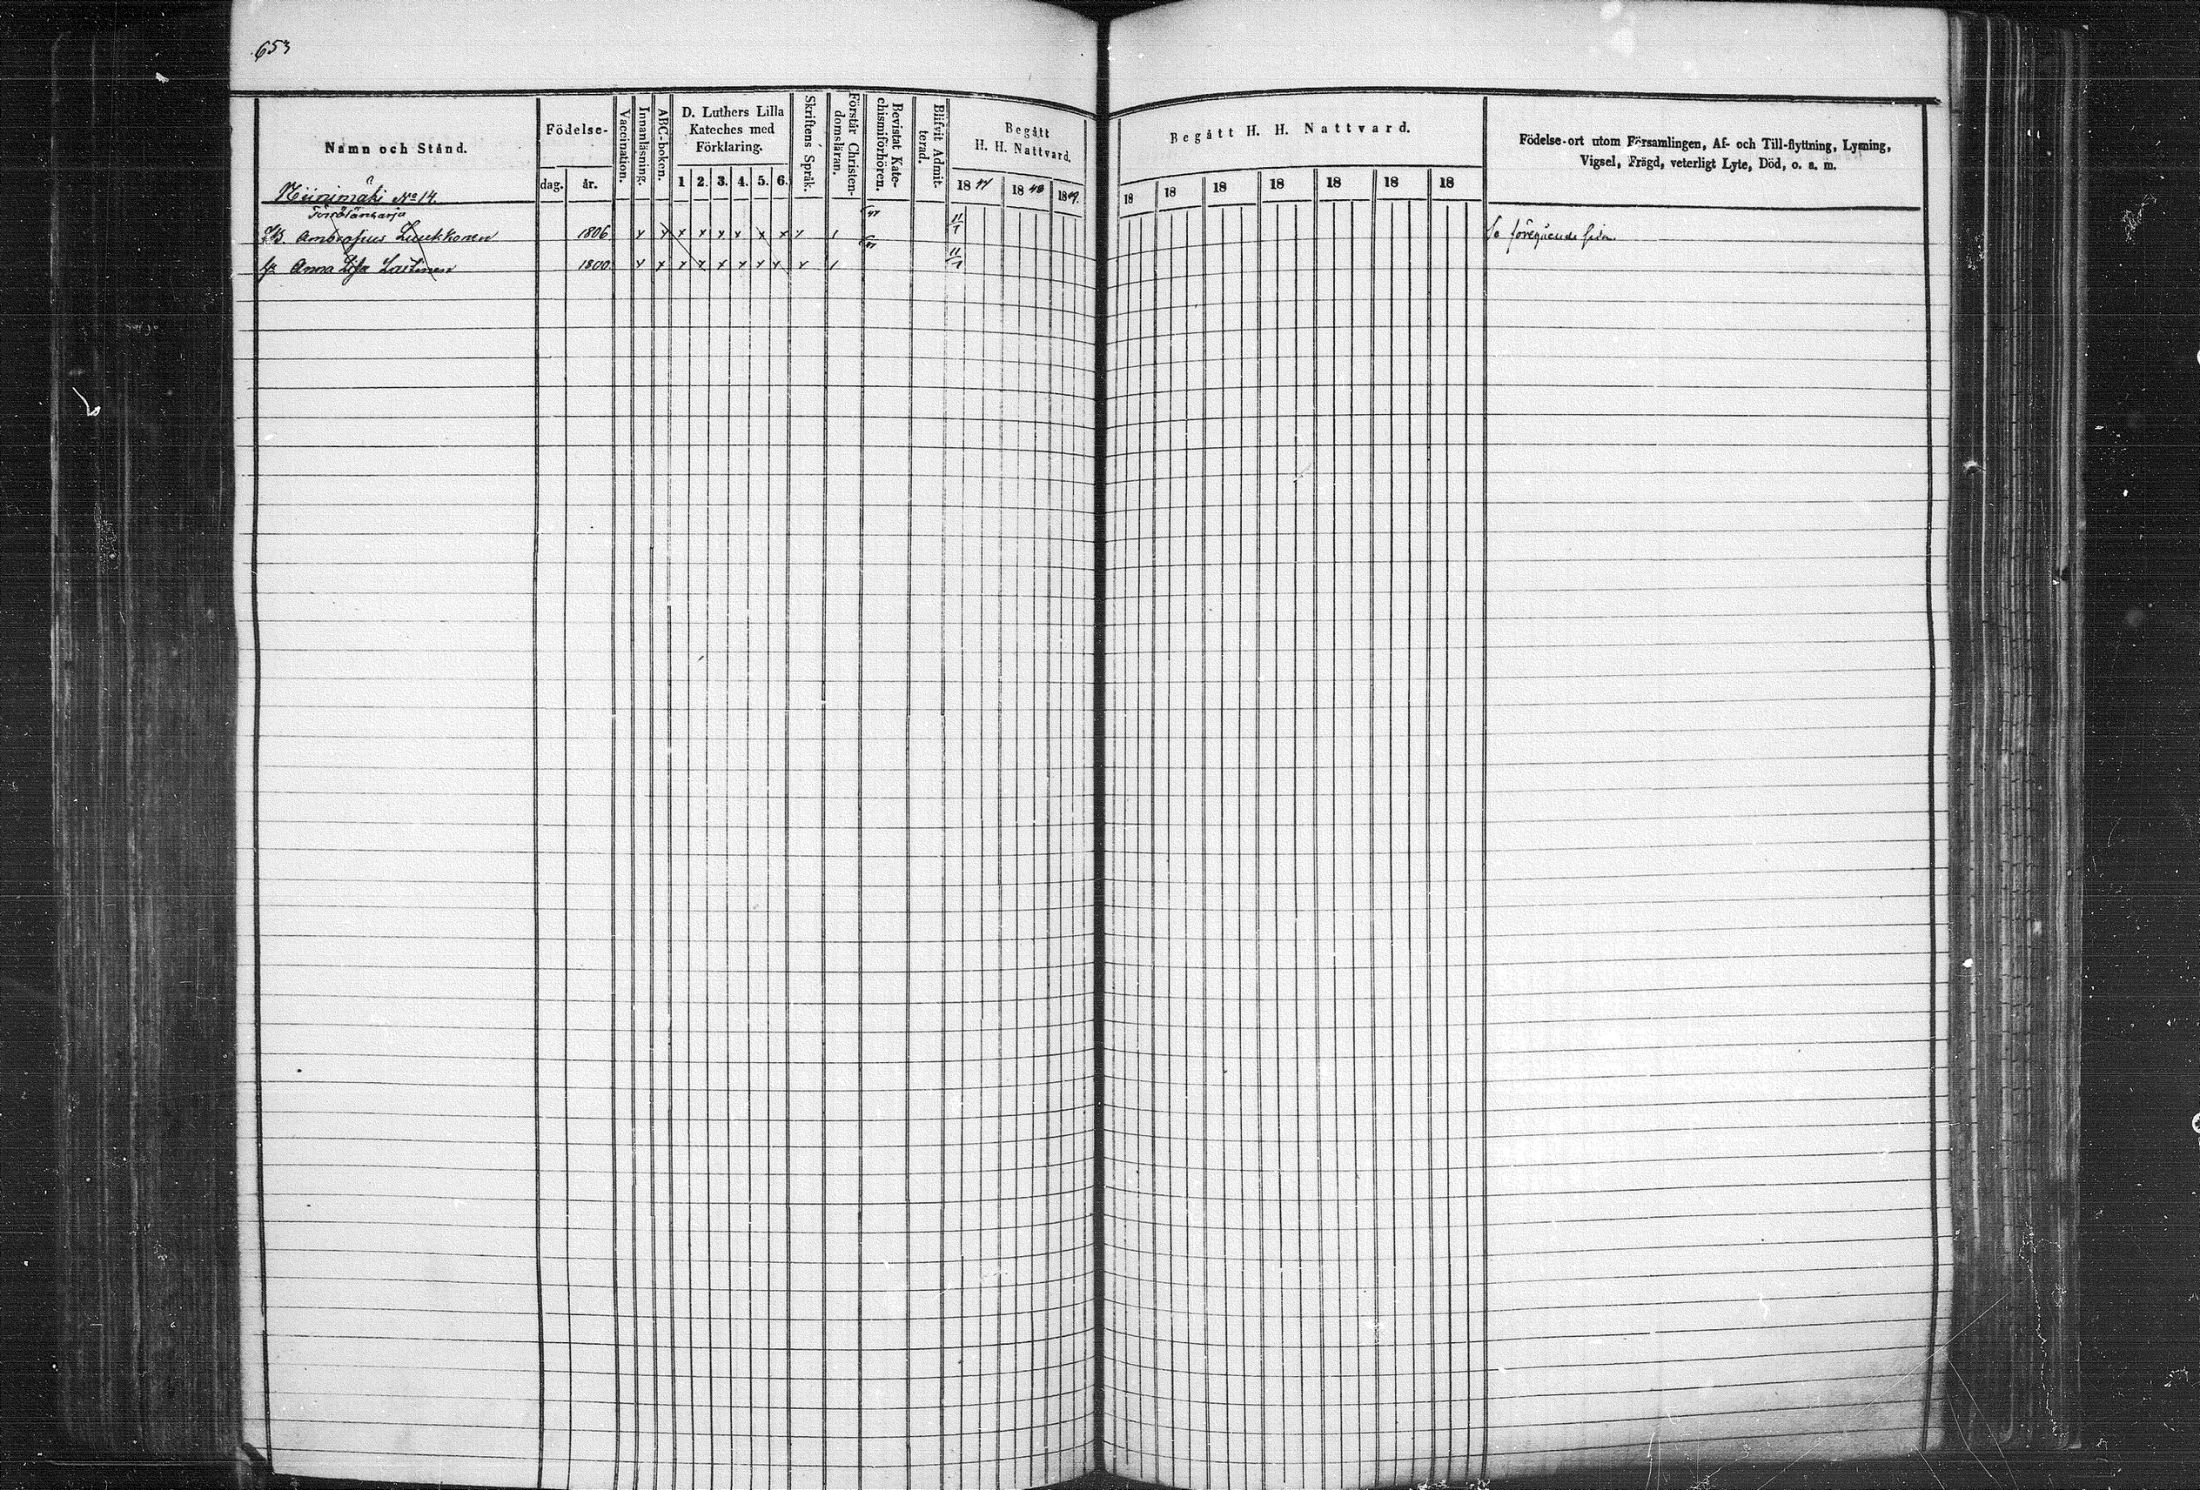 653
Namn och Stånd.
Födelse-
dag. år.
Vaccination.
Innanläsning.
ABC-boken.
D. Luthers Lilla
Kateches med
Förklaring.
1 2. 3. 4. 5. 6.
Skriftens Språk.
Förstår Christen-
domsläran.
Bevistat Kate-
chismiförhören.
Blifvit Admit-
terad.
Begått
H. H. Nattvard.
1847 1848 1849.
Begått H. H. Nattvard.
18 18 18 18 18 18 18
Födelse-ort utom Församlingen, Af- och Till-flyttning, Lysning,
Vigsel, Frägd, veterligt Lyte, Död, o. s. m.
Niinimäki No 14.
Ambrosius Luukkonen 1806 x x x x x x x x x 1 47 11/1 Se föregående sida
h. Anna Lisa Laitinen 1800 x x x x x x x x x 1 47 11/1